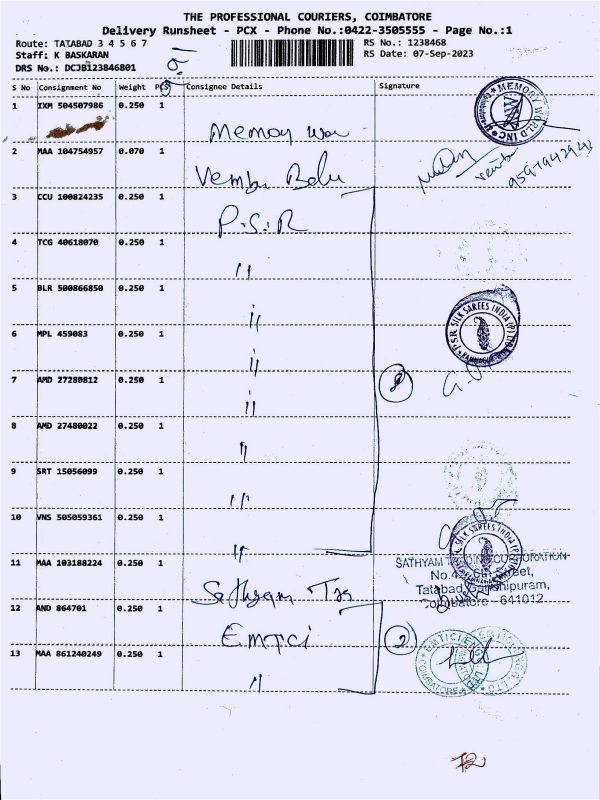 THE PROFESSIONAL COURIERS, COIMBATORE
Delivery Runsheet - PCX - Phone No.:0422-3505555 - Page No.:1
Route: TATABAD 3 4 5 6 7
RS No.: 1238468
Staff: K BASKARAN
RS Date: 07-Sep-2023
DRS No.: DCJB123846801
S No Consignment No Weight PCS Consignee Details Signature
1 IXM 504507986 0.250 1
MEMORY WORLD INC
Memory
2 MAA 104754957 0.070 1
Vembu Babu
3 CCU 100824235 0.250 1
P.S.R
4 TCG 40618070 0.250 1
"
5 BLR 500866850 0.250 1
"
P.S.R. SILK SAREES INDIA (P) LTD
6 MPL 459083 0.250 1
"
7 AMD 27280812 0.250 1
"
8 AMD 27480022 0.250 1
"
9 SRT 15056099 0.250 1
"
10 VNS 505059361 0.250 1
"
SILK SAREES INDIA (P)
11 MAA 103188224 0.250 1
SATHYAM TRADING CORPORATION
Street,
Tatabad, Gandhipuram,
Coimbatore - 641012
Sathyam
12 AND 864701 0.250 1
EMTCI
2
13 MAA 861240249 0.250 1
"
COIMBATORE
72